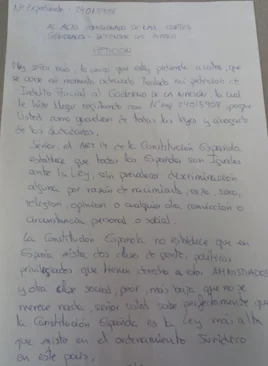 Nº Expediente : 24015958
AL ALTO COMISIONADO DE LAS CORTES
GENERALES - DEFENSOR DEL PUEBLO
PETICION
Muy señor mio, la unica que estoy presente a usted, que
se abre en momento actuando Traslado mi peticion de
Indulto Parcial al Gobierno de la Nación la cual
le hizo llegar registrado con Nº reg 24015958, porque
Usted como guardian de todas las leyes y abogado
de los ciudadanos.
Señor, el ART 14 de la Constitución Española
establece que todos los Españoles son Iguales
ante la Ley, sin prevalecer discriminación
alguna por razón de nacimiento, raza, sexo,
religion, opinion o cualquier otra condicion o
circunstancia personal o social.
La Constitución Española no establece que en
España exista dos clases de gente, politicos
privilegiados que tienen derecho a ser AMNISTIADOS
y otra clase social, peor, mas baja que no se
merece nada, señor usted sabe perfectamente que
la Constitución Española es la Ley mas alta
que existe en el ordenamiento Juridico
en este pais.